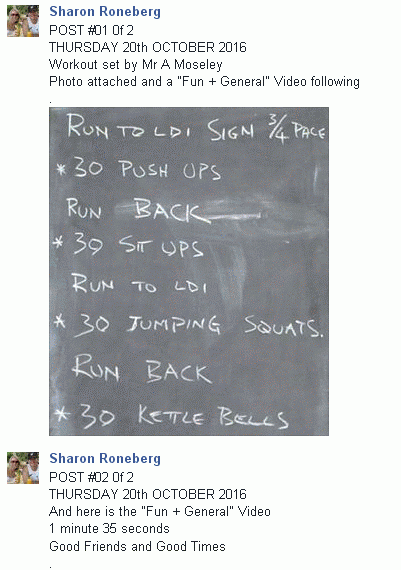 Sharon Roneberg
POST #01 0f 2
THURSDAY 20th OCTOBER 2016
Workout set by Mr A Moseley
Photo attached and a "Fun + General" Video following
.
RUN TO LDI SIGN 3/4 PACE
* 30 PUSH UPS
RUN BACK
* 30 SIT UPS
RUN TO LDI
* 30 JUMPING SQUATS.
RUN BACK
* 30 KETLE BELLS
Sharon Roneberg
POST #02 0f 2
THURSDAY 20th OCTOBER 2016
And here is the "Fun + General" Video
1 minute 35 seconds
Good Friends and Good Times
.